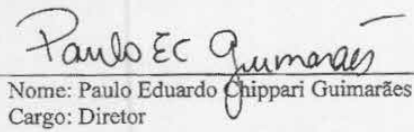 Paulo EC Guimarães
Nome: Paulo Eduardo Chippari Guimarães
Cargo: Diretor